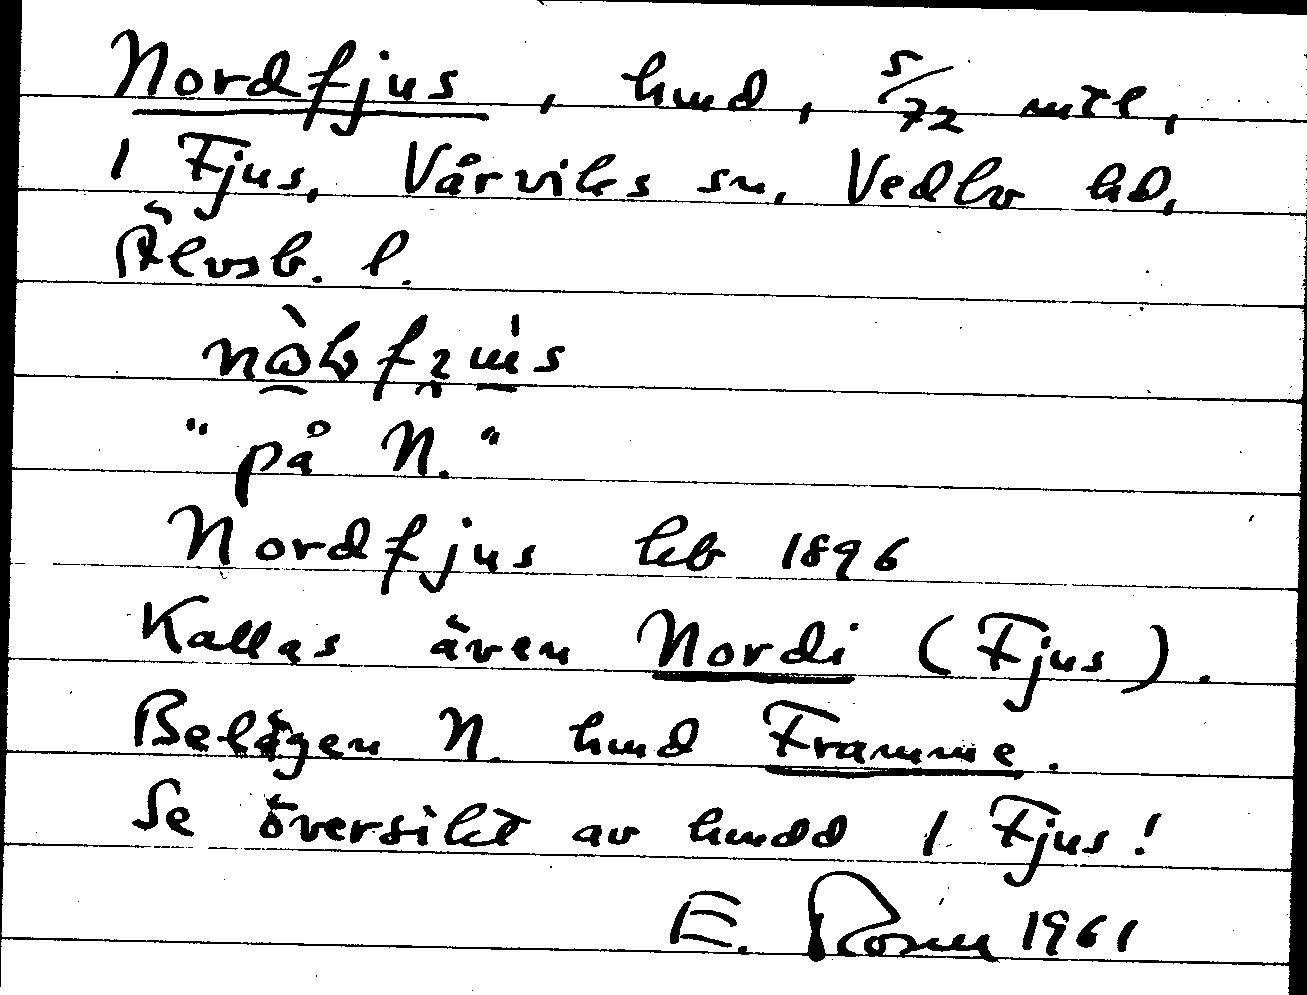 Nordfjus, hmd, 5/72 mtl,
1 Fjus, Vårviks sn, Vedbo hd,
Älvsb. l.
"på N."
Nordfjus kb 1896
Kallas även Nordi (Fjus).
Belägen N. hmd Framme.
Se översikt av hmdd 1 Fjus!
E. Rosen 1961